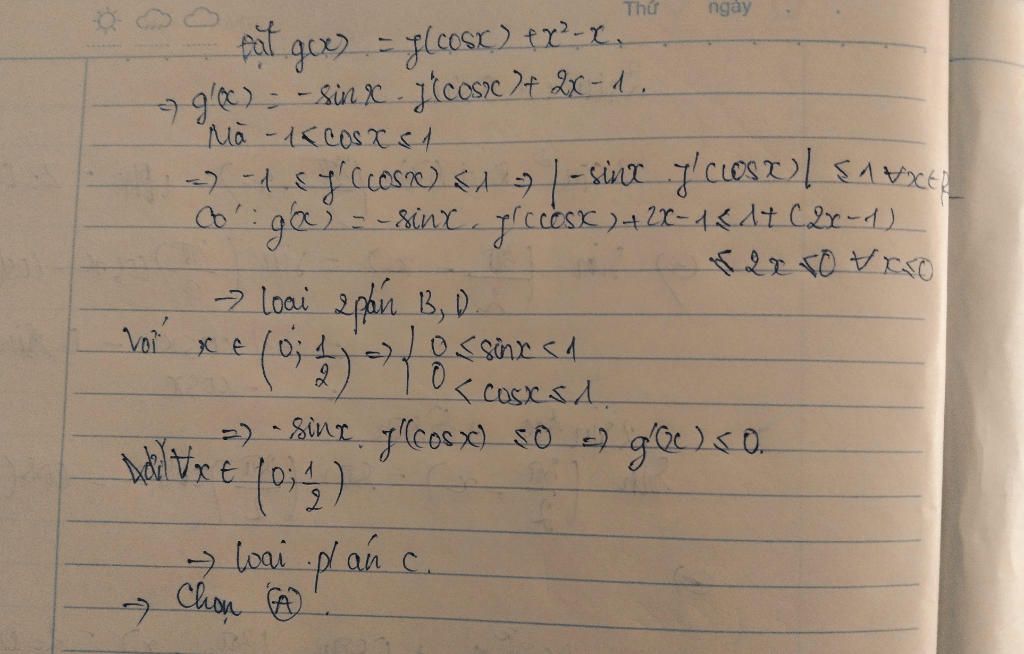 Thứ ngày
Đặt g(x) = f(cosx) + x² - x.
⇒ g'(x) = -sinx . f'(cosx) + 2x - 1.
Mà -1 ≤ cosx ≤ 1
⇒ -1 ≤ f'(cosx) ≤ 1 ⇒ |-sinx . f'(cosx)| ≤ 1 ∀x∈R
Có : g'(x) = -sinx . f'(cosx) + 2x - 1 ≤ 1 + (2x - 1)
≤ 2x ≤ 0 ∀x≤0
→ loại 2 p/án B, D.
Với x ∈ (0; 1/2) ⇒ { 0 ≤ sinx < 1
0 < cosx ≤ 1.
⇒ -sinx . f'(cosx) ≤ 0 ⇒ g'(x) ≤ 0.
∀x ∈ (0; 1/2)
→ loại p/án C.
→ Chọn (A).